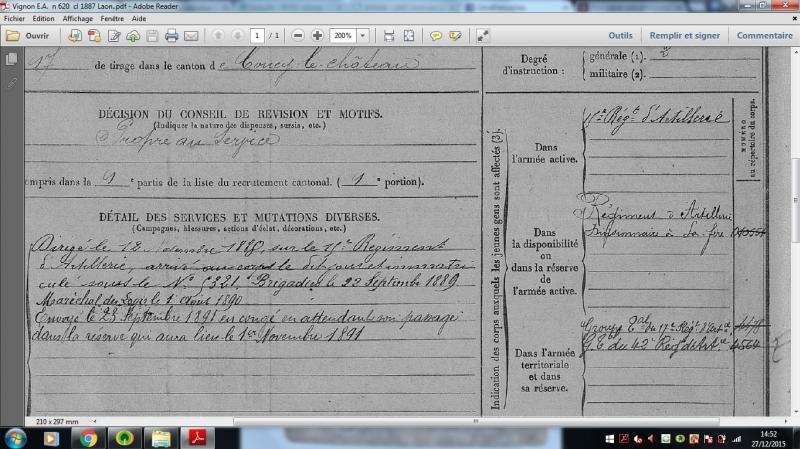 Vignon E.A. n 620 cl 1887 Laon.pdf - Adobe Reader
Fichier Edition Affichage Fenêtre Aide
Ouvrir 1 / 1 200% Outils Remplir et signer Commentaire
17 de tirage dans le canton de Coucy-le-château
DÉCISION DU CONSEIL DE REVISION ET MOTIFS.
(Indiquer la nature des dispenses, sursis, etc.)
Propre au Service
compris dans la 1e partie de la liste du recrutement cantonal. (1e portion).
DÉTAIL DES SERVICES ET MUTATIONS DIVERSES.
(Campagnes, blessures, actions d'éclat, décorations, etc.)
Dirigé le 12 1889, sur le Régiment
d'Artillerie, arrivé au corps le dit jour et immatri
culé sous le N° Brigadier le 22 Septembre 1889
Maréchal des Logis le 1 Août 1890
Envoyé le 23 Septembre 1891 en congé en attendant son passage
dans la réserve qui aura lieu le 1er Novembre 1891
Degré
d'instruction :
générale (1). 2
militaire (2).
Indication des corps auxquels les jeunes gens sont affectés (3).
NUMÉRO
au répertoire du corps.
Dans
l'armée active.
Régt d'Artillerie
Dans
la disponibilité
ou
dans la réserve
de
l'armée active.
Régiment d'Artillerie
à La-fère
Dans l'armée
territoriale
et dans
sa réserve.
Groupe du 17e Régt d'Art
du 42e Régt d'Art 4564
210 x 297 mm
14:52
27/12/2015